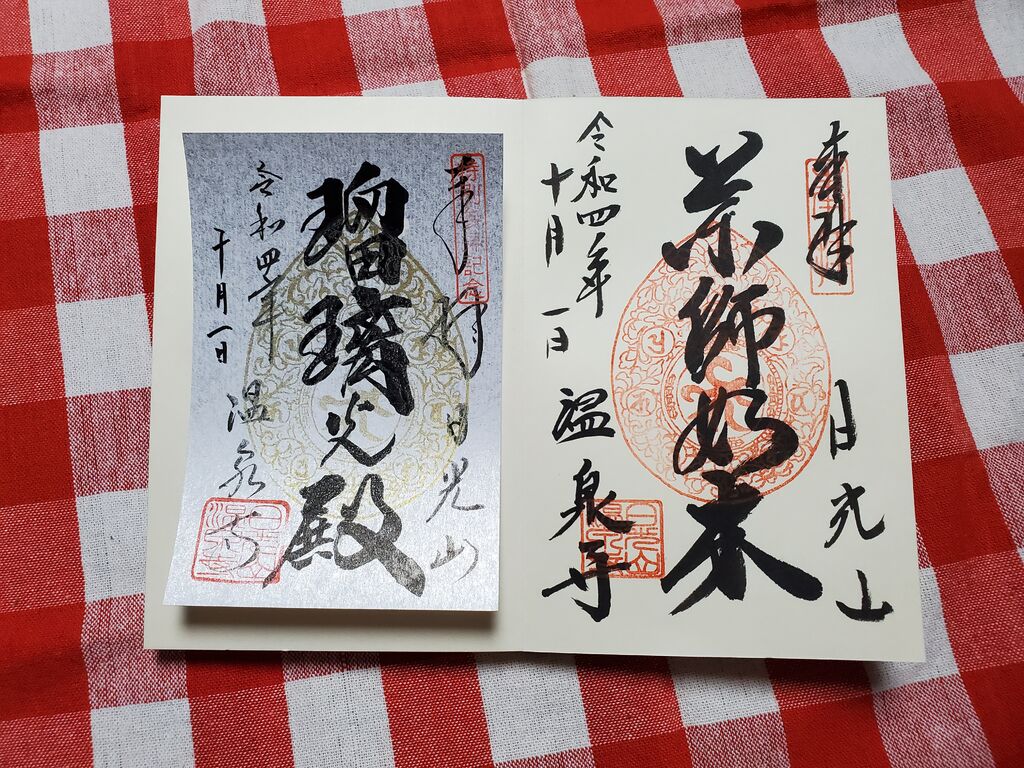 奉拝
日光山
薬師如来
令和四年
十月一日
温泉寺
奉拝
日光山
瑠璃光殿
令和四年
十月一日
温泉寺